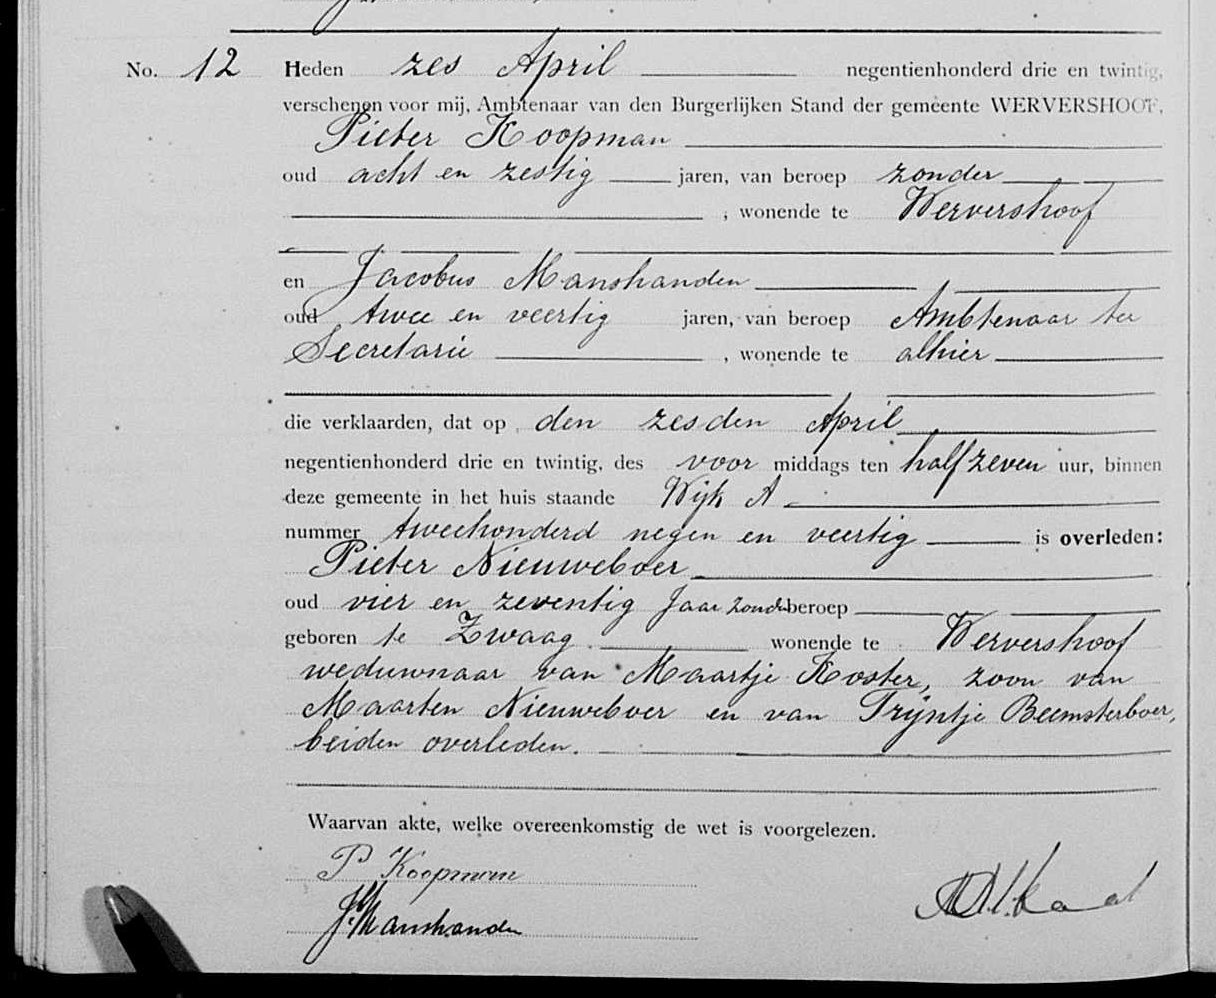 No. 12 Heden zes April negentienhonderd drie en twintig,
verschenen voor mij, Ambtenaar van den Burgerlijken Stand der gemeente WERVERSHOOF,
Pieter Koopman
oud acht en zestig jaren, van beroep zonder
, wonende te Wervershoof
en Jacobus Manshanden
oud twee en veertig jaren, van beroep Ambtenaar ter
Secretarie , wonende te alhier
die verklaarden, dat op den zesden April
negentienhonderd drie en twintig, des voor middags ten half zeven uur, binnen
deze gemeente in het huis staande Wijk A
nummer tweehonderd negen en veertig is overleden:
Pieter Nieuweboer
oud vier en zeventig jaar zonder beroep
geboren te Zwaag wonende te Wervershoof
weduwnaar van Maartje Koster, zoon van
Maarten Nieuweboer en van Trijntje Beemsterboer,
beiden overleden.
Waarvan akte, welke overeenkomstig de wet is voorgelezen.
P Koopman
J. Manshanden